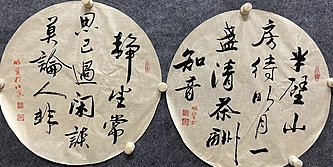 静坐常
思己過闲談
莫論人非
半壁山
房待明月一
盏清茶酬
知音